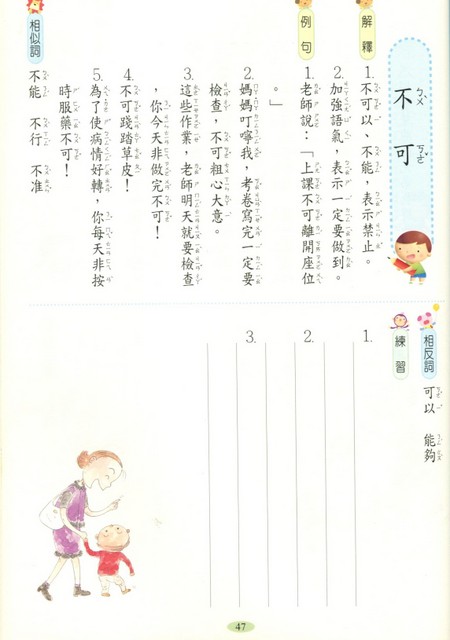 不可
解釋
1.不可以、不能，表示禁止。
2.加強語氣，表示一定要做到。
例句
1.老師說：「上課不可離開座位
。」
2.媽媽叮嚀我，考卷寫完一定要
檢查，不可粗心大意。
3.這些作業，老師明天就要檢查
，你今天非做完不可！
4.不可踐踏草皮！
5.為了使病情好轉，你每天非按
時服藥不可！
相似詞
不能 不行 不准
相反詞
可以 能夠
練習
1.
2.
3.
47